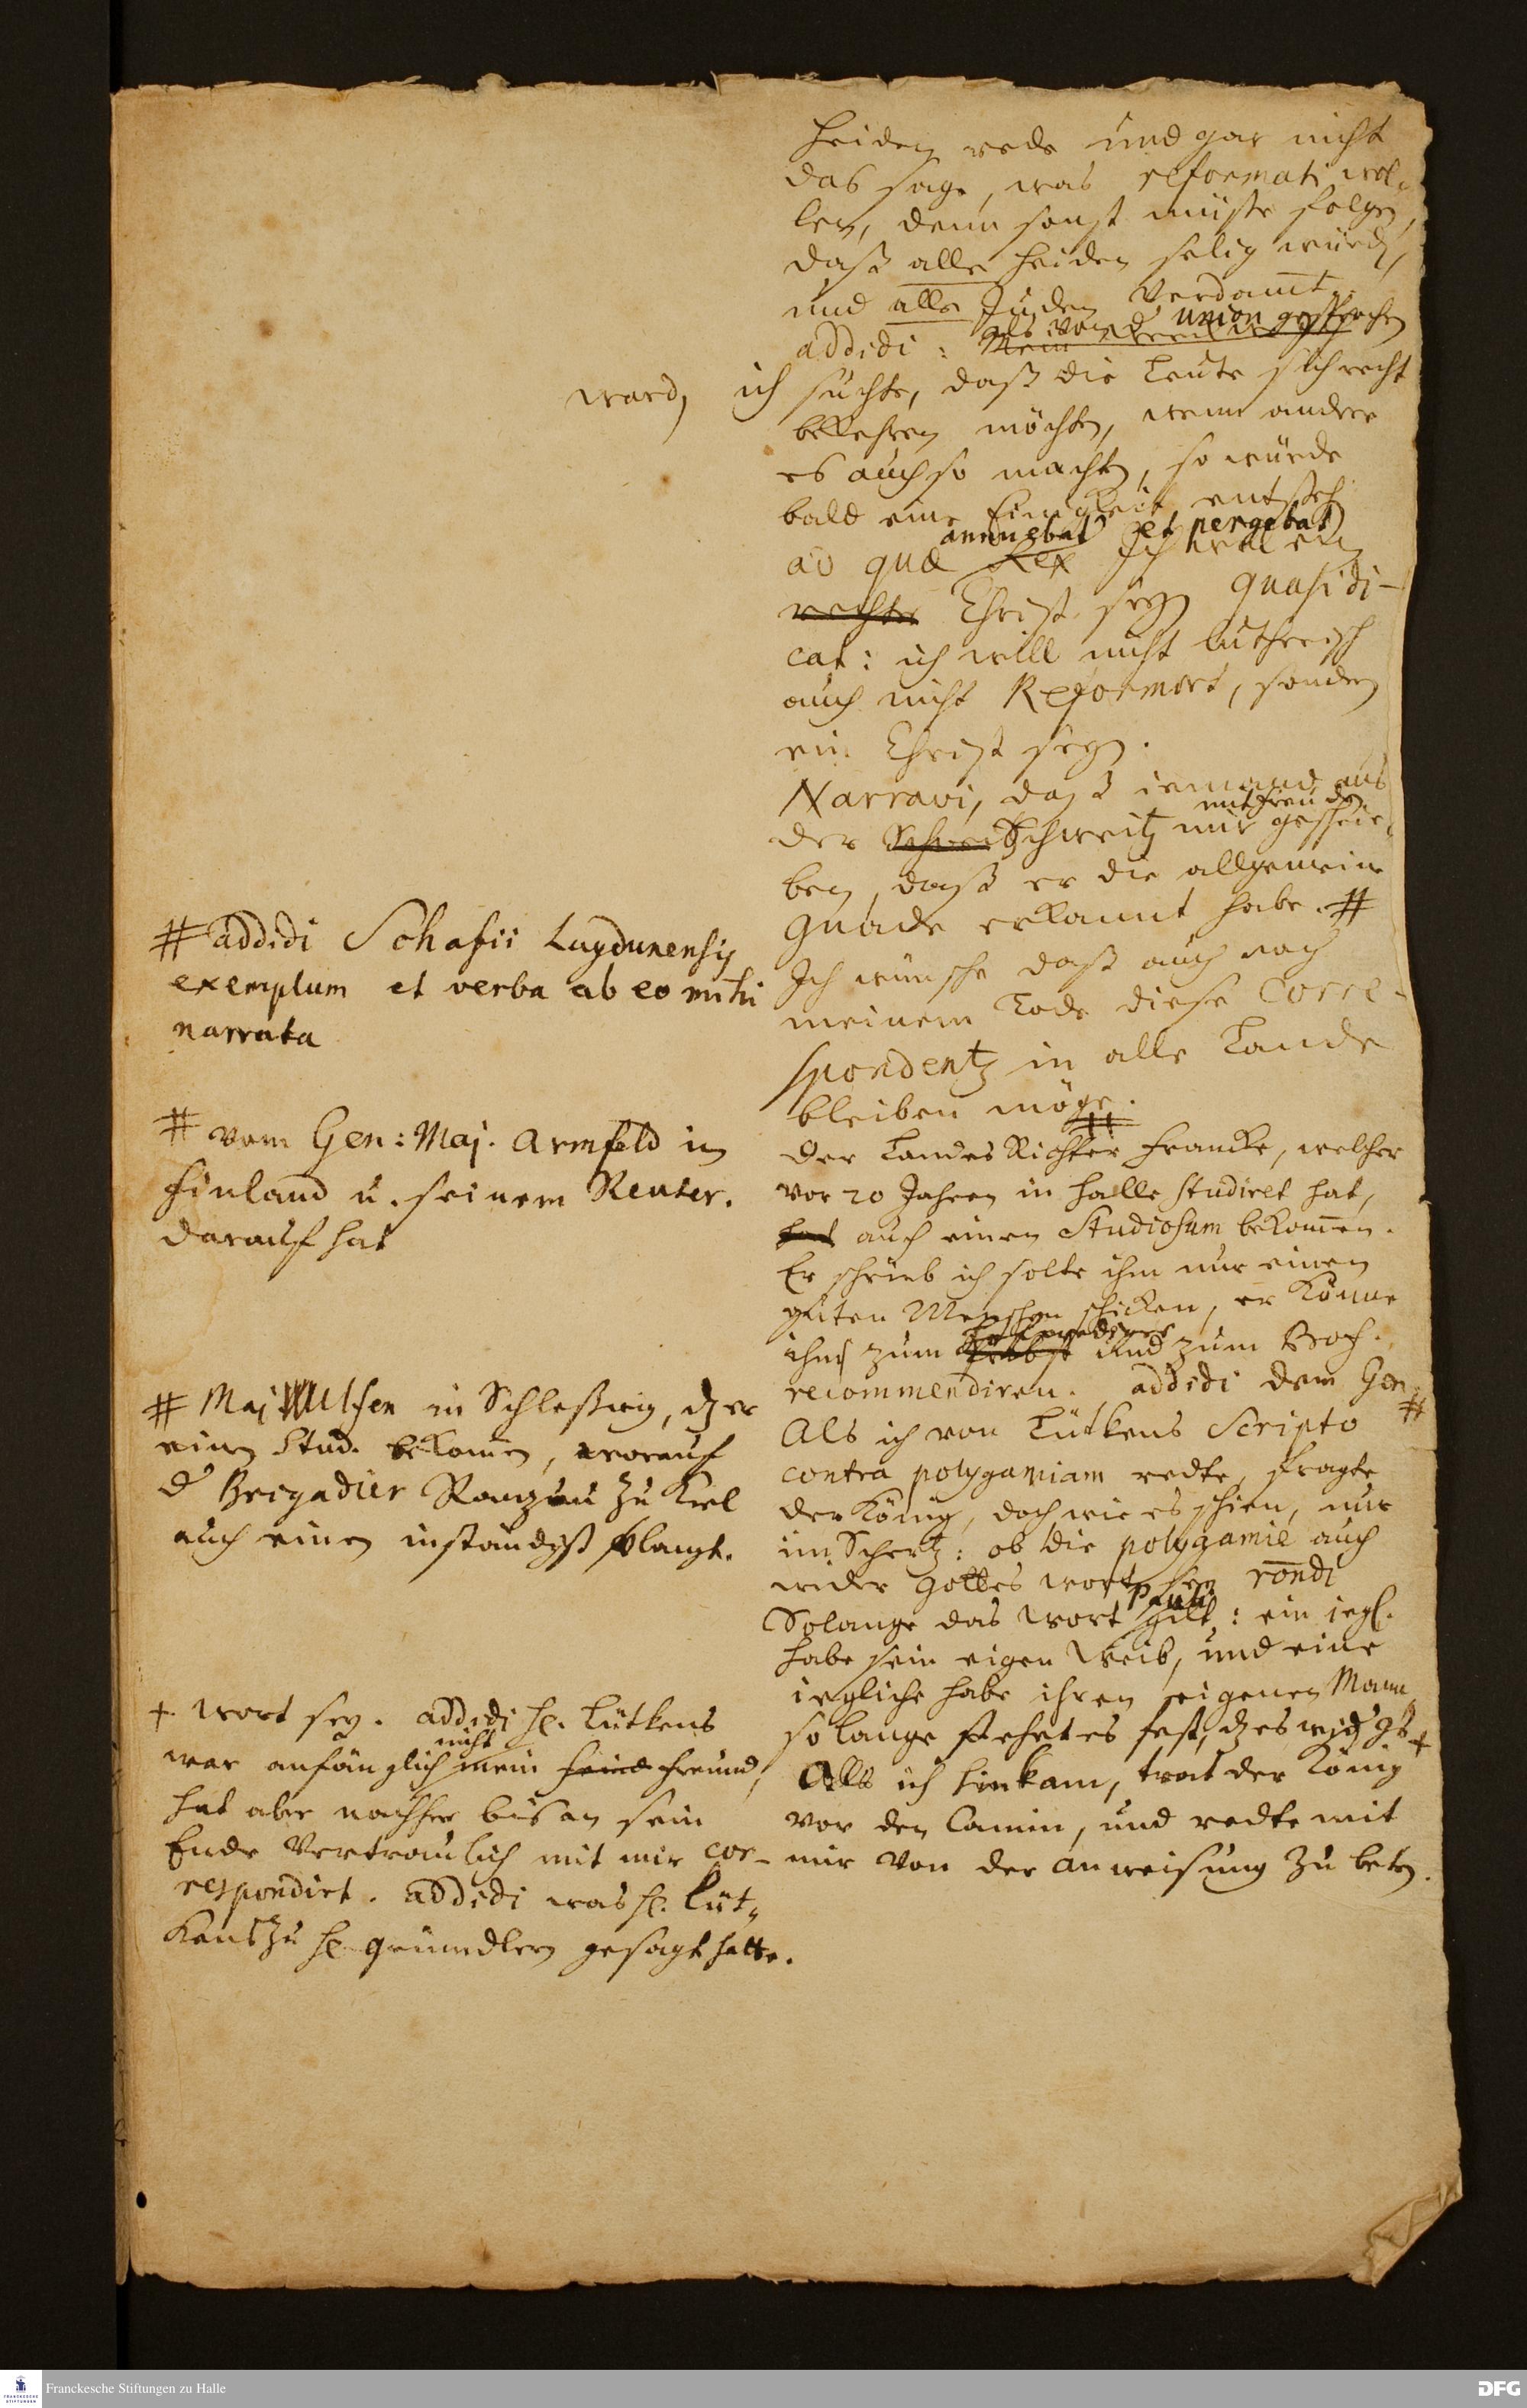 heiden rede und gar nicht
das sage, was reformati wol-
len, denn sonst müste folgen,
daß alle heiden selig würden,
und alle Juden verdamt.
als von der union gesprochen
addidi: Mein
ward, ich suchte, daß die Leute sich recht
bekehren möchten, wenn andere
es auch so machten, so würde
bald eine Einigkeit entstehen
annuebat et pergebat
ad quæ Rex Ich will ein
rechter Christ seyn quasi di-
cat: ich will nicht lutherisch
auch nicht Reformirt, sondern
ein Christ seyn.
Narravi, daß iemand aus
mit freuden
der Schwei Schweitz mir geschrie-
ben, daß er die allgemeine
gnade erkannt habe. #
# addidi Schafii Lugdunensis
exemplum et verba ab eo mihi
narrata
Ich wünsche daß auch nach
meinem Tode diese Corre-
spondentz in alle Lande
bleiben möge.
#
# vom Gen: Maj. Armfeld in
Finland u. seinem Reuter.
darauf hat
Der Landes Richter Francke, welcher
vor 20 Jahren in Halle studiret hat,
hat auch einen Studiosum bekommen.
Er schrieb ich solte ihm nur einen
guten Menschen schicken, er könne
ihn zum Probst und zum
recommendiren. addidi dem Gen. #
# Maj. Wulfen in Schleßwig, dz er
einen Stud. bekomen, worauf
d. Brigadier Ranzau zu Kiel
auch einen inständigst verlangt.
Als ich von Lütkens Scripto
contra polygamiam redte, fragte
der König, doch wie es schien, nur
im Schertz: ob die polygamie auch
wider Gottes wort sey rondi
Pauli
Solange das wort gilt: ein iegl.
habe sein eigen Weib, und eine
iegliche habe ihren eigenen Mann,
so lange stehet es fest, dz es wid. Gs +
+ wort sey. addidi H. Lütkens
nicht
war anfänglich mein feind freund,
hat aber nachher bis an sein
Ende vertraulich mit mir cor-
respondirt. addidi was H. Lüt-
kens zu H. Gründlern gesagt hatte.
Als ich hinkam, trat der König
vor den Camin, und redte mit
mir von der anweisung zu beten.
Franckesche Stiftungen zu Halle
DFG